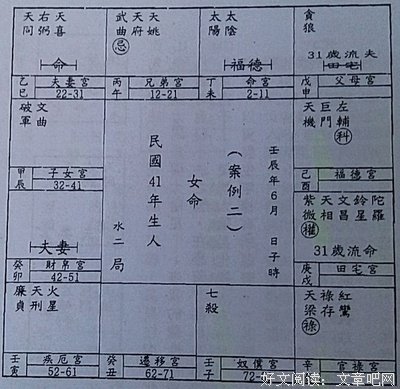 天右天
同弼喜
命
乙巳 夫妻宮 22-31
武天天
曲府姚
忌
丙午 兄弟宮 12-21
太太
陽陰
福德
丁未 命宮 2-11
貪
狼
31歲流夫
田宅
戊申 父母宮
破文
軍曲
甲辰 子女宮 32-41
天巨左
機門輔
科
己酉 福德宮
(案例二)
女命
民國41年生人
壬辰年6月 日子時
水二局
夫妻
癸卯 財帛宮 42-51
紫天文鈴陀
微相昌星羅
權
31歲流命
庚戌 田宅宮
廉天火
貞刑星
壬寅 疾厄宮 52-61
癸丑 遷移宮 62-71
七
殺
壬子 奴僕宮 72-
天祿紅
梁存鸞
祿
辛 官祿宮
好文阅读：文章吧网